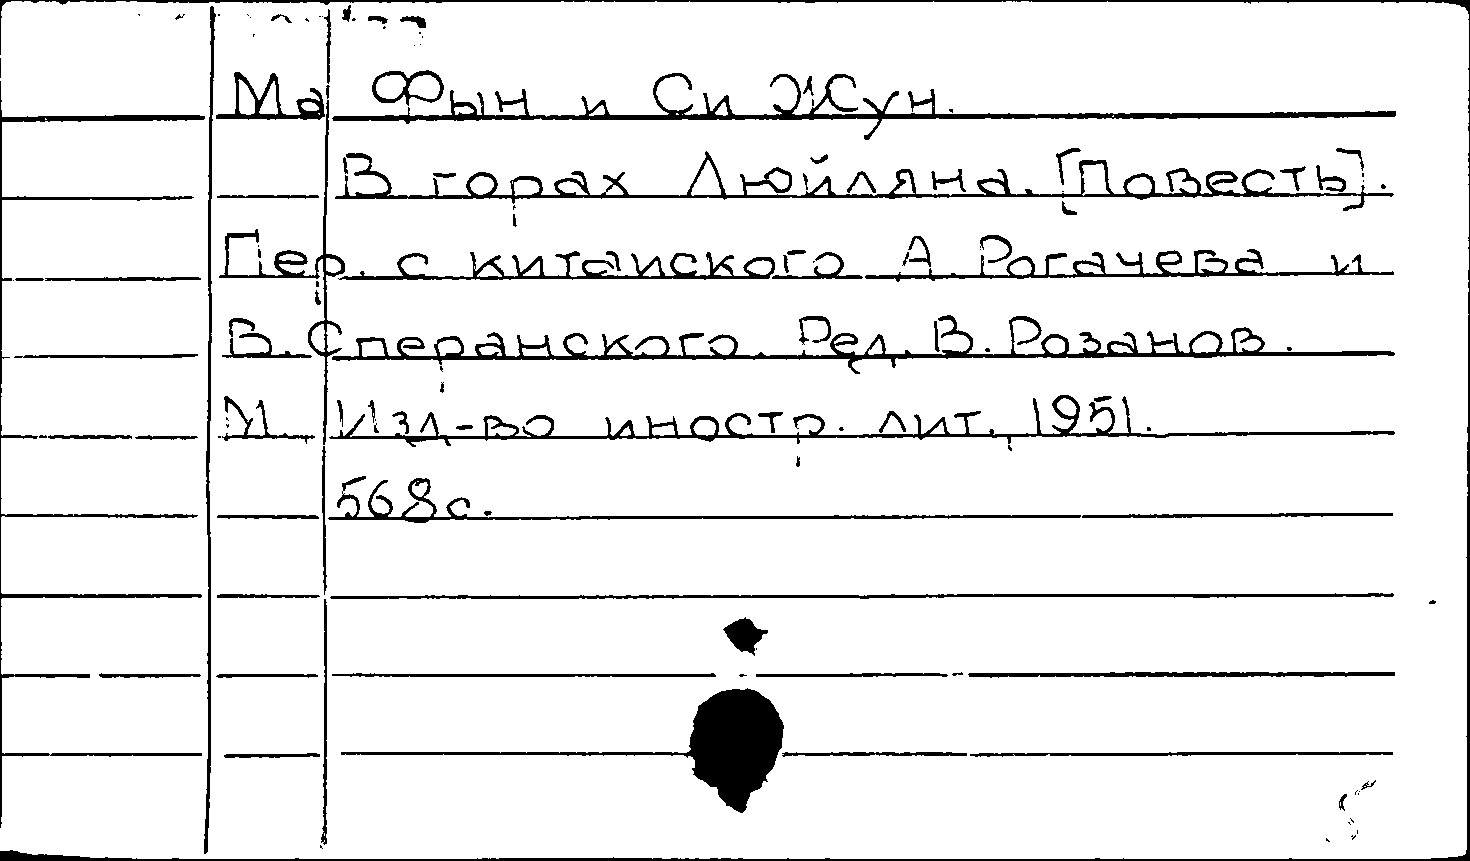 Ма Фын и Си Жун.
В горах Люйляна. [Повесть].
Пер. с китаиского А. Рогачева и
В. Сперанского. Ред. В. Розанов.
М., Изд-во иностр. лит., 1951.
568с.